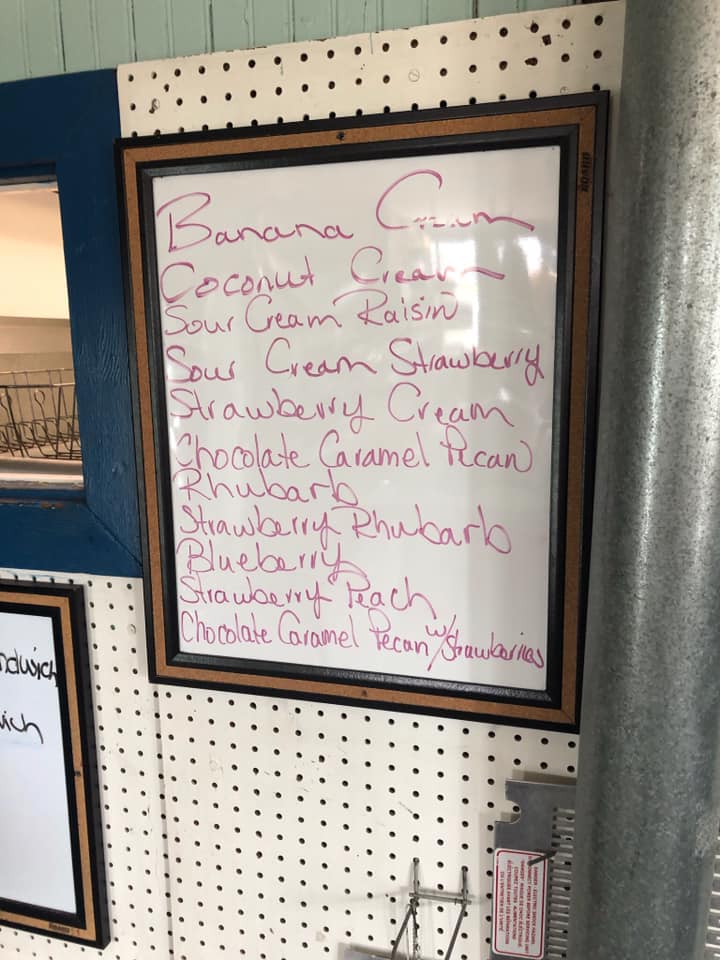 Banana Cream
Coconut Cream
Sour Cream Raisin
Sour Cream Strawberry
Strawberry Cream
Chocolate Caramel Pecan
Rhubarb
Strawberry Rhubarb
Blueberry
Strawberry Peach
Chocolate Caramel Pecan w/ Strawberries
ndwich
ich